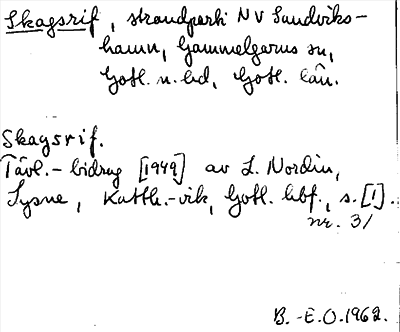 Skagsrif, strandparti NV Sandviks-
hamn, Gammelgarns sn,
Gotl. n. hd, Gotl. län.
Skagsrif.
Tävl.-bidrag [1949] av L. Nordin,
Sysne, Katth.-vik, Gotl. hbf., s. [1].
nr. 31
B.-E.O. 1962.